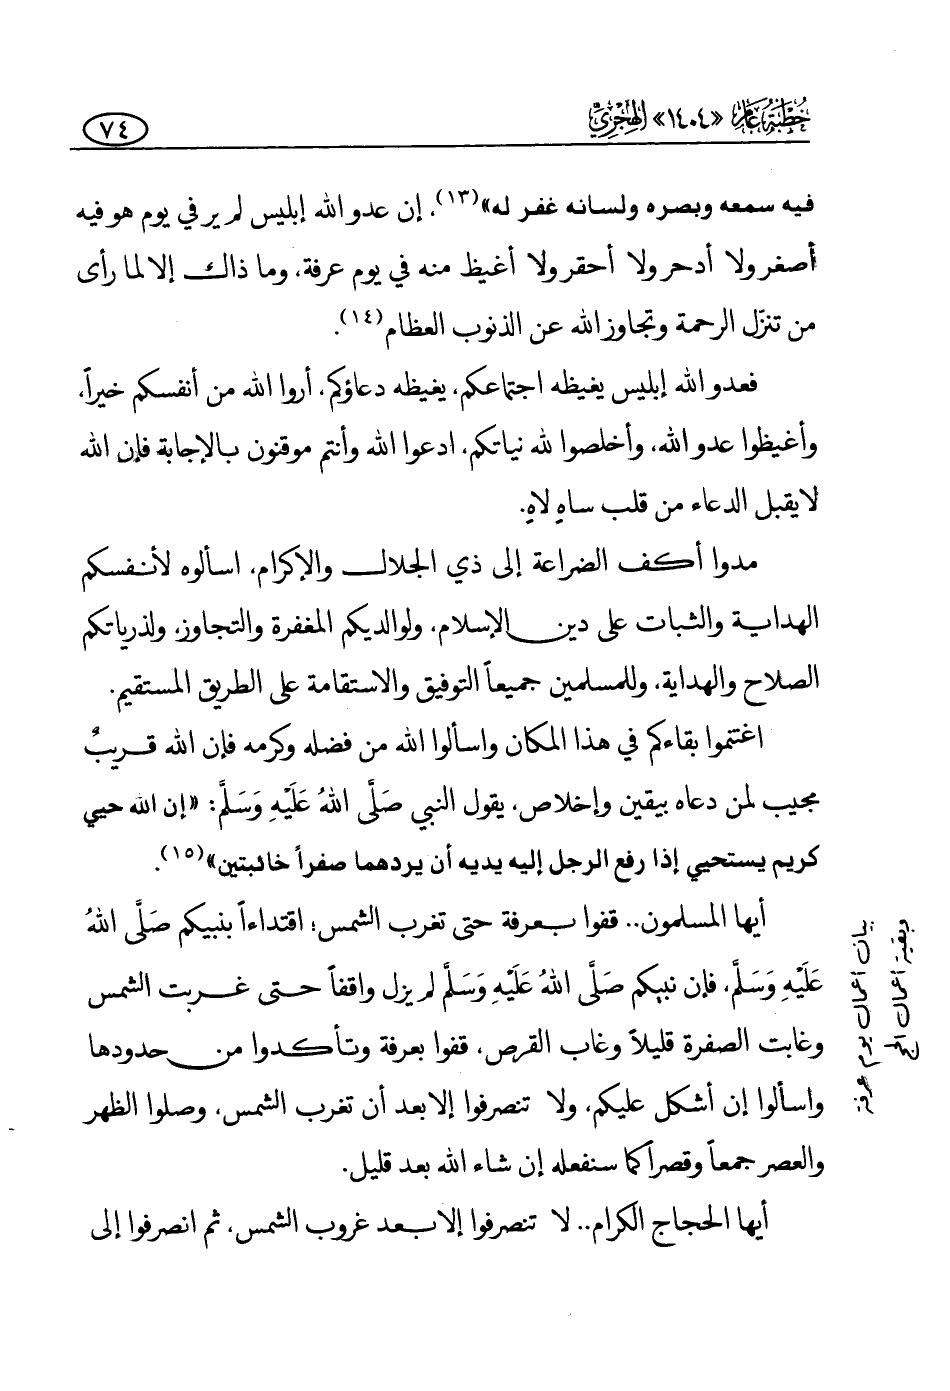 خُطْبَةُ عَامِ «١٤٠٤» الهِجْرِيِّ
٧٤
فيه سمعه وبصره ولسانه غفر له»(١٣). إن عدو الله إبليس لم ير في يوم هو فيه
أصغر ولا أدحر ولا أحقر ولا أغيظ منه في يوم عرفة، وما ذاك إلا لما رأى
من تنزّل الرحمة وتجاوز الله عن الذنوب العظام(١٤).
فعدو الله إبليس يغيظه اجتماعكم، يغيظه دعاؤكم، أروا الله من أنفسكم خيراً،
وأغيظوا عدو الله، وأخلصوا لله نياتكم، ادعوا الله وأنتم موقنون بالإجابة فإن الله
لا يقبل الدعاء من قلب ساهٍ لاهٍ.
مدوا أكف الضراعة إلى ذي الجلال والإكرام، اسألوه لأنفسكم
الهداية والثبات على دين الإسلام، ولوالديكم المغفرة والتجاوز، ولذرياتكم
الصلاح والهداية، وللمسلمين جميعاً التوفيق والاستقامة على الطريق المستقيم.
اغتنموا بقاءكم في هذا المكان واسألوا الله من فضله وكرمه فإن الله قريبٌ
مجيب لمن دعاه بيقين وإخلاص، يقول النبي صَلَّى اللهُ عَلَيْهِ وَسَلَّمَ: «إن الله حيي
كريم يستحيي إذا رفع الرجل إليه يديه أن يردهما صفراً خائبتين»(١٥).
أيها المسلمون.. قفوا بعرفة حتى تغرب الشمس؛ اقتداءاً بنبيكم صَلَّى اللهُ
عَلَيْهِ وَسَلَّمَ، فإن نبيكم صَلَّى اللهُ عَلَيْهِ وَسَلَّمَ لم يزل واقفاً حتى غربت الشمس
وغابت الصفرة قليلاً وغاب القرص، قفوا بعرفة وتأكدوا من حدودها
واسألوا إن أشكل عليكم، ولا تنصرفوا إلا بعد أن تغرب الشمس، وصلوا الظهر
والعصر جمعاً وقصراً كما سنفعله إن شاء الله بعد قليل.
أيها الحجاج الكرام.. لا تنصرفوا إلا بعد غروب الشمس، ثم انصرفوا إلى
بيان أعمال يوم عرفة
وبقية أعمال الحج